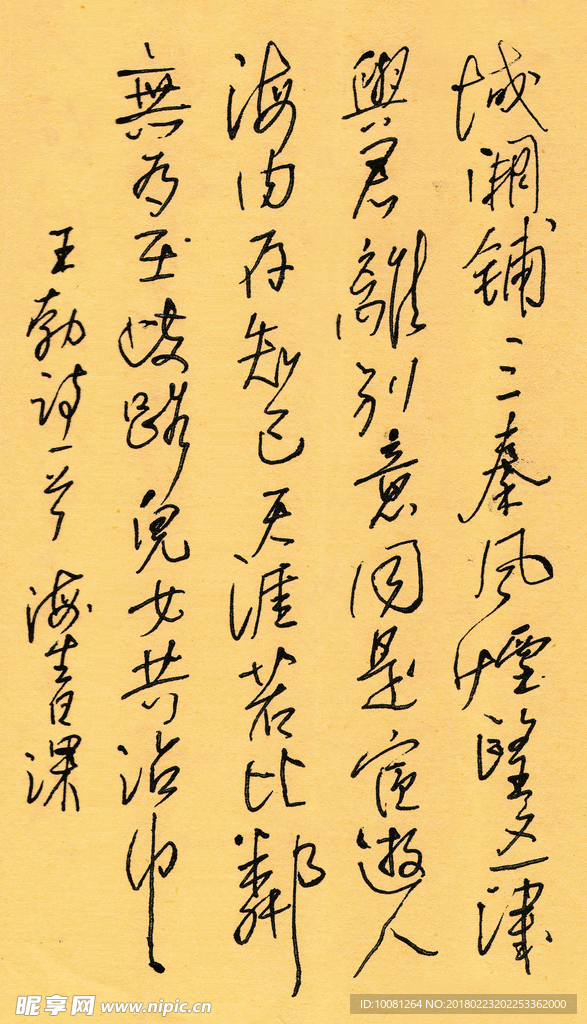 城闕鋪三秦風煙望五津
與君離別意同是宦遊人
海内存知己天涯若比鄰
無為在歧路兒女共沾巾
王勃詩一首 海生日課
昵享网 www.nipic.cn
ID:10081264 NO:20180223202253362000